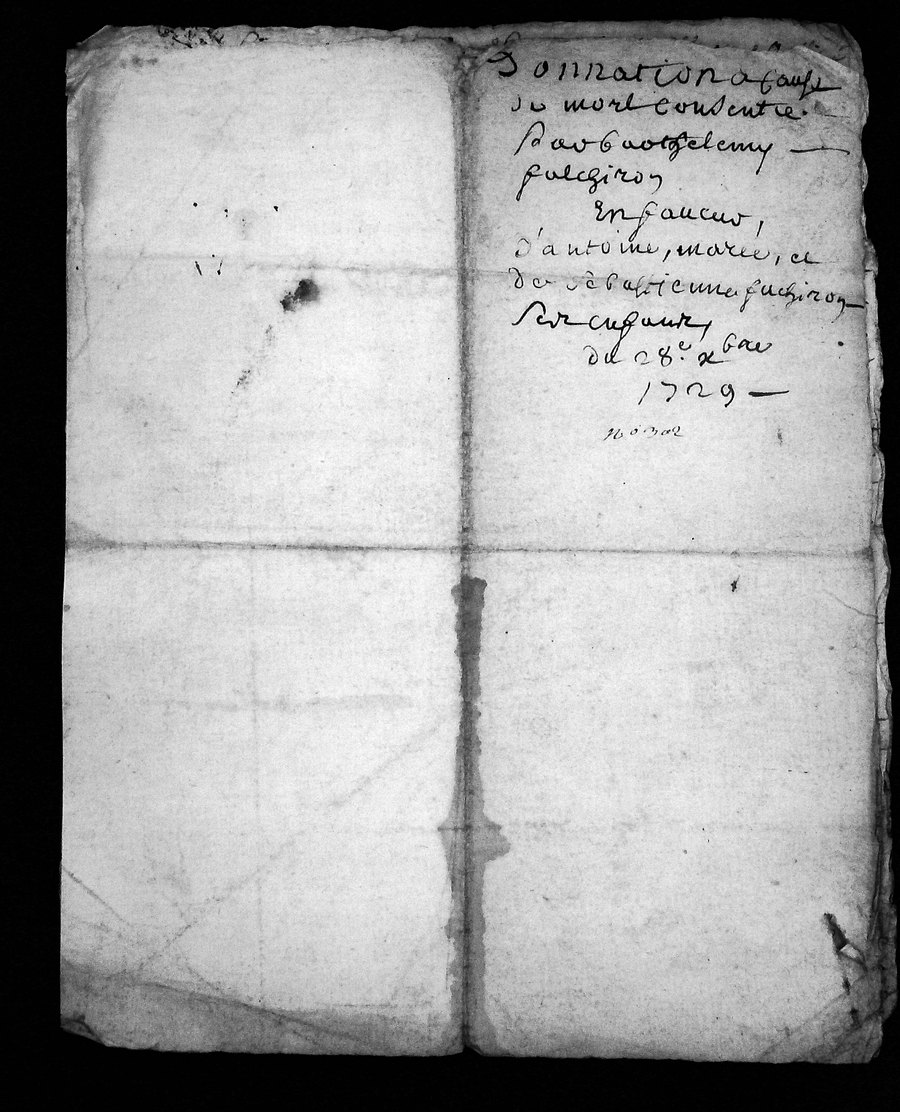 Donnation a cause
de mort consentie
par barthelemy
fulchiron
En faueur,
d'antoine, marie, et
de sebastienne fulchiron
ses enfans,
du 28.e xbre
1729